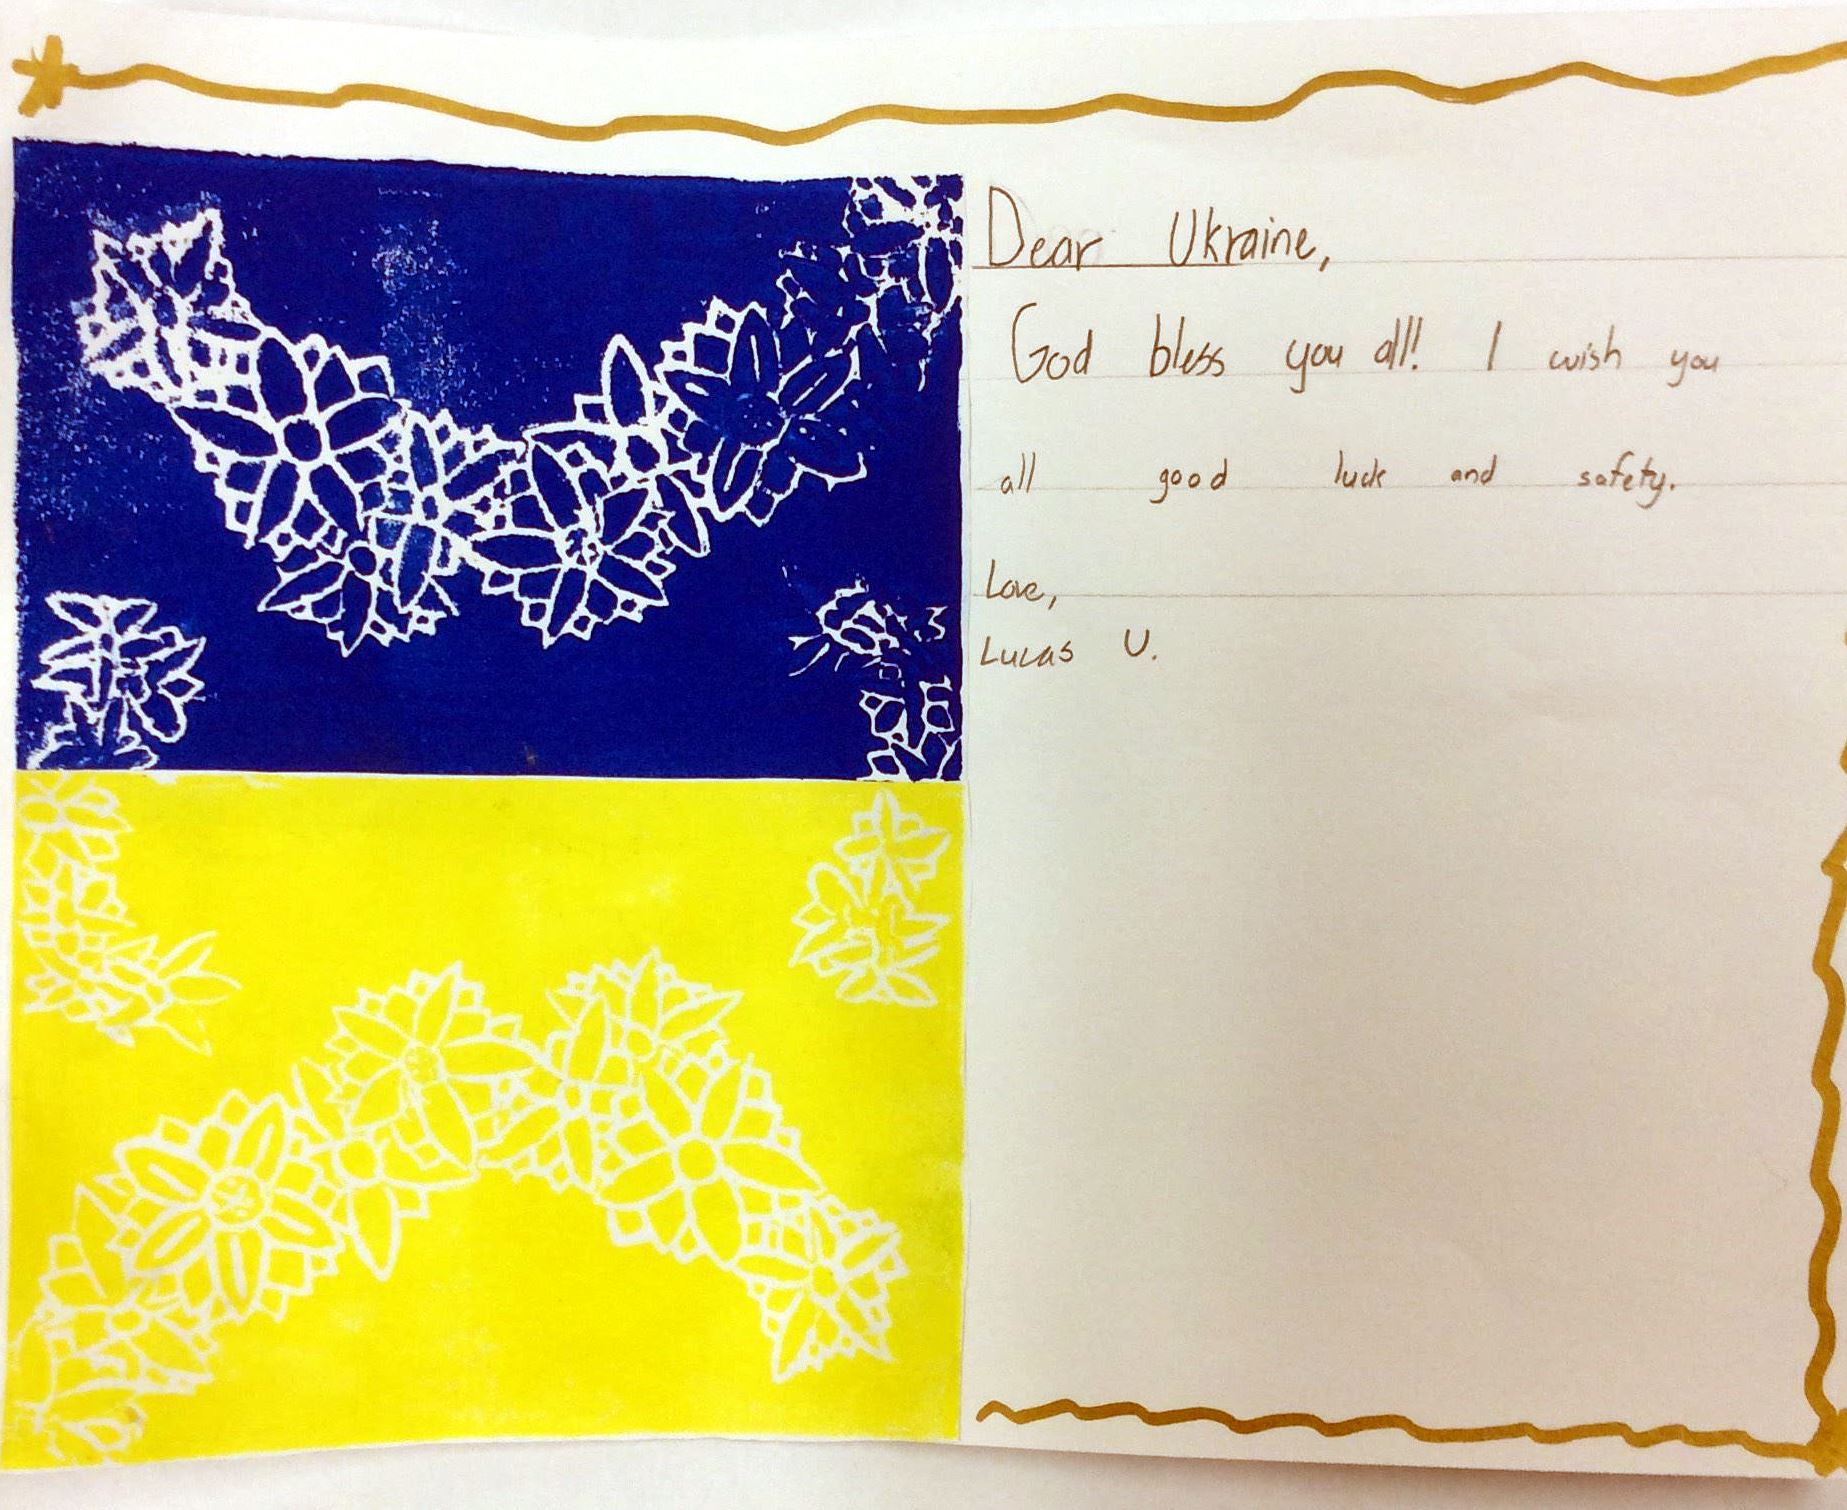 Dear Ukraine,
God bless you all! I wish you
all good luck and safety.
Love,
Lucas U.